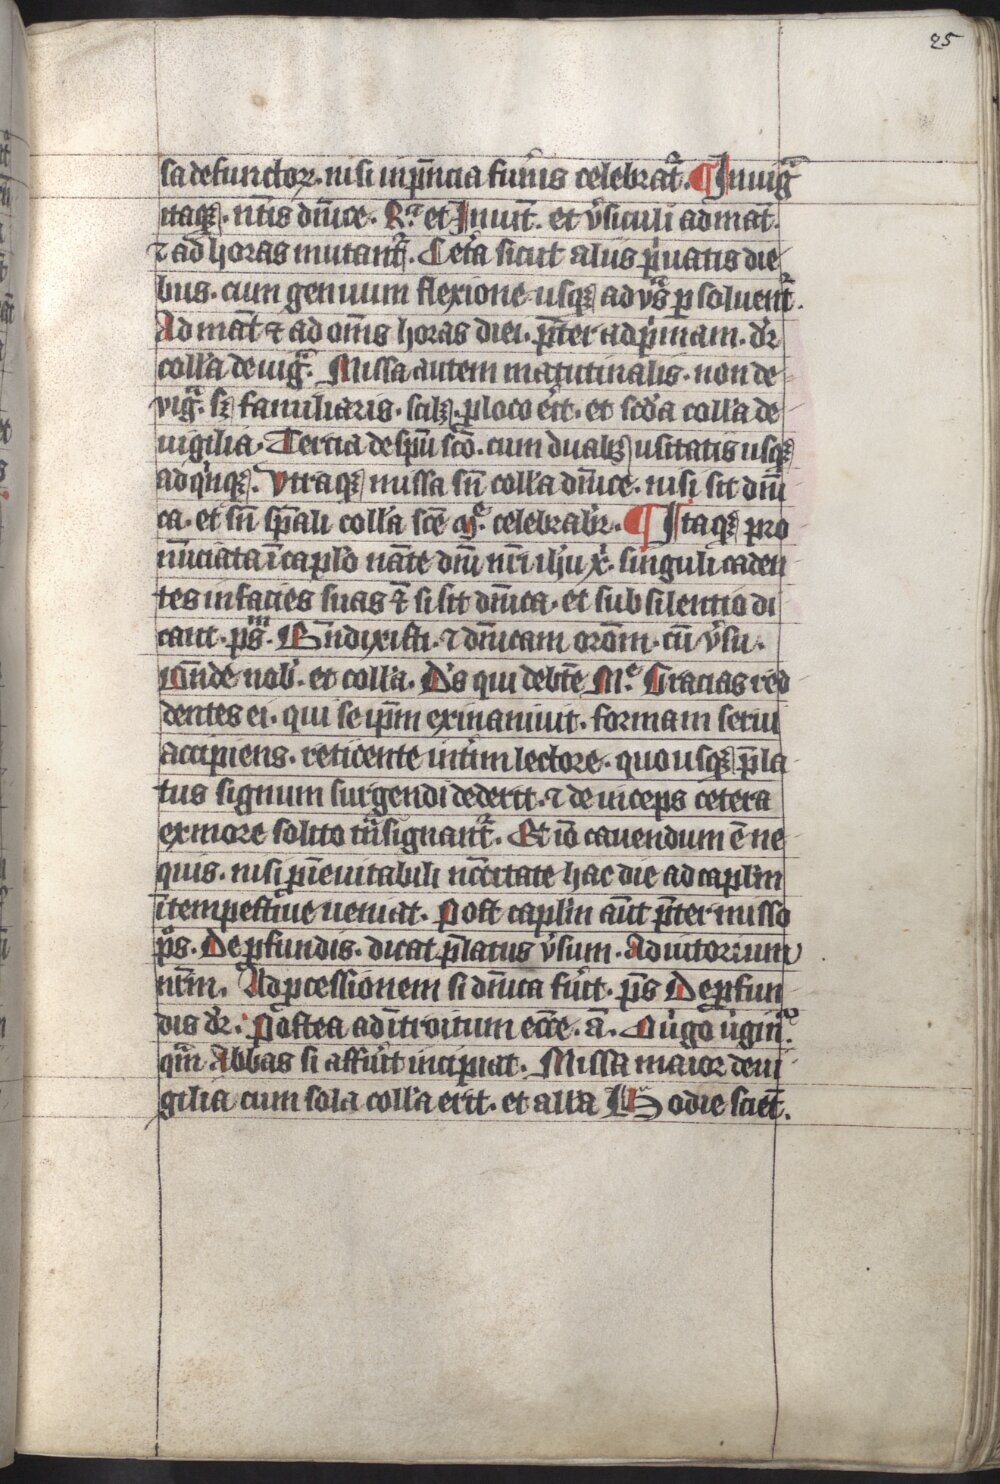 25
sa defunctoꝝ. nisi in p̄ncia fun̾is celebrat᷑. ¶ In uigᷓ
itaqꝫ. nt̄is dn̄ice. Rᷓ et Inuit̄. et v̾siculi ad mat̄.
⁊ ad horas mutant᷑. Cet̾a sicut aliis p̾uatis die
bus. cum genuum flexione usqꝫ ad vᷓs ꝑsoluent᷑.
Ad mat̄ ⁊ ad om̄s horas diei. p̄ter ad p̾mam. dr̾
coll̾a de uigᷓ. Missa autem matutinalis. non de
vigᷓ. sꝫ familiaris. scilꝫ. ꝓ loco er̾it. et scd̾a coll̾a de
uigilia. Tercia de sp̄u sc̄o. cum dualꝫ usitatis usqꝫ
ad q̾nqꝫ. Vtraqꝫ missa sn̄ coll̾a dn̄ice. nisi sit dn̄i
ca. et sn̄ sp̄ali coll̾a sc̄e celebrabr̾. ¶ Itaqꝫ pro
nunciata ī capl̾o nat̄e dn̄i nr̄i ih̾u x̾. singuli caden
tes in facies suas &̄ si sit dn̄ica. et sub silentio di
cant. ps̄ᵐ. Bn̄dixisti. ⁊ dn̄icam orōm. cū v̾su.
On̄de nob̾. et coll̾a. Ds̾ qui deb̄te Mᵉ. Gracias red
dentes ei. qui se ip̄m exinaniuit. formam serui
accipiens. reticente int̾im lectore. quo usqꝫ p̄la
tus signum surgendi dederit. ⁊ deinceps cetera
ex more solito t̾nsignant᷑. Et iō cauendum ē ne
quis. nisi p̾ ineuitabili nc̄citate hac die ad capl̾m
ītempestiue ueniat. Post capl̾m aūt p̄ter misso
ps̄. De ꝓfundis. dicat p̄latus v̾sum. Adiutorium
nr̄m. Ad ꝓcessionem si dn̄ica fu̾it. ps̄ De ꝓfun
dis dr̾. Postea ad ītroitum ecc̄e. a̅. O u̾go u̾ginᷓ.
qm̄ Abbas si affu̾it incipiat. Missa maior de ui
gilia cum sola coll̾a erit. et all̾a Hodie sciet̄.